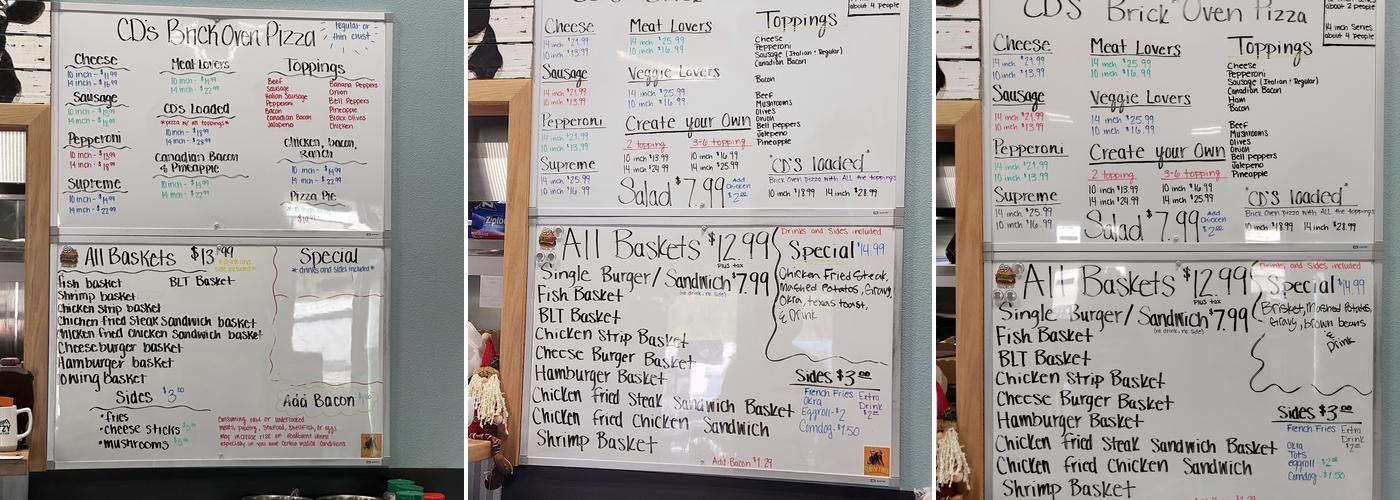 CD's Brick Oven Pizza
regular or
thin crust
Cheese
10 inch - $11.99
14 inch - $16.99
Sausage
10 inch - $13.99
14 inch -
Pepperoni
10 inch - $13.99
14 inch - $18.99
Supreme
10 inch - $14.99
14 inch - $22.99
Meat Lovers
10 inch - $14.99
14 inch - $22.99
CD's Loaded
*pizza w/ all toppings*
10 inch - $18.99
14 inch - $28.99
Canadian Bacon
& Pineapple
10 inch - $14.99
14 inch - $22.99
Toppings
Beef
Sausage
Italian Sausage
Pepperoni
Bacon
Canadian Bacon
Jalapeno
Banana Peppers
Onion
Bell Peppers
Pineapple
Black Olives
Chicken
Chicken, bacon,
Ranch
10 inch - $14.99
14 inch - $22.99
Pizza Pie
All Baskets $13.99
*drink and
side included*
Fish basket
BLT Basket
Shrimp basket
Chicken strip basket
Chicken fried Steak Sandwich basket
Chicken fried Chicken Sandwich basket
Cheeseburger basket
Hamburger basket
Sides $3.00
•fries
•cheese sticks
•mushrooms
Special
*drinks and sides included*
Add Bacon
Consuming raw or undercooked
meats, poultry, seafood, shellfish, or eggs
may increase risk of foodborne illness
especially if you have certain medical conditions
about 4 people
Cheese
14 inch $21.99
10 inch $13.99
Sausage
14 inch $21.99
10 inch $13.99
Pepperoni
14 inch $21.99
10 inch $13.99
Supreme
14 inch $25.99
10 inch $16.99
Meat Lovers
14 inch $25.99
10 inch $16.99
Veggie Lovers
14 inch $25.99
10 inch $16.99
Create your Own
2 topping
10 inch $13.99
14 inch $24.99
3-6 topping
10 inch $16.99
14 inch $25.99
Salad $7.99
Add
Chicken
$2.00
Toppings
Cheese
Pepperoni
Sausage (Italian + Regular)
Canadian Bacon
Bacon
Beef
Mushrooms
Olives
Onion
Bell peppers
Jalepeno
Pineapple
"CD's loaded"
Brick Oven pizza with ALL the toppings
10 inch $18.99 14 inch $28.99
Ziploc
All Baskets $12.99
Plus tax
Single Burger/Sandwich $7.99
(no drink, no side)
Fish Basket
BLT Basket
Chicken Strip Basket
Cheese Burger Basket
Hamburger Basket
Chicken fried Steak Sandwich Basket
Chicken fried Chicken Sandwich
Shrimp Basket
Add Bacon $1.29
Drinks and Sides included
Special $14.99
Chicken Fried Steak,
Mashed Potatos, Gravy,
Okra, texas toast,
& Drink
Sides $3.00
French Fries
Okra
Eggroll-$2
Corndog-$1.50
Extra
Drink
$2.00
CD's Brick Oven Pizza
about 2 people
14 inch Serves
about 4 people
Cheese
14 inch $21.99
10 inch $13.99
Sausage
14 inch $21.99
10 inch $13.99
Pepperoni
14 inch $21.99
10 inch $13.99
Supreme
14 inch $25.99
10 inch $16.99
Meat Lovers
14 inch $25.99
10 inch $16.99
Veggie Lovers
14 inch $25.99
10 inch $16.99
Create your Own
2 topping
10 inch $13.99
14 inch $24.99
3-6 topping
10 inch $16.99
14 inch $25.99
Salad $7.99
Add
Chicken
$2.00
Toppings
Cheese
Pepperoni
Sausage (Italian + Regular)
Canadian Bacon
Ham
Bacon
Beef
Mushrooms
Olives
Onion
Bell peppers
Jalepeno
Pineapple
"CD's loaded"
Brick Oven pizza with ALL the toppings
10 inch $18.99 14 inch $28.99
All Baskets $12.99
Plus tax
Single Burger/Sandwich $7.99
(no drink, no side)
Fish Basket
BLT Basket
Chicken Strip Basket
Cheese Burger Basket
Hamburger Basket
Chicken fried Steak Sandwich Basket
Chicken fried Chicken Sandwich
Shrimp Basket
Drinks and Sides included
Special $14.99
Brisket, Mashed Potatos,
Gravy, brown beans
&
Drink
Sides $3.00
French Fries
Okra
Tots
eggroll-$2.00
Corndog-$1.50
Extra
Drink
$2.00